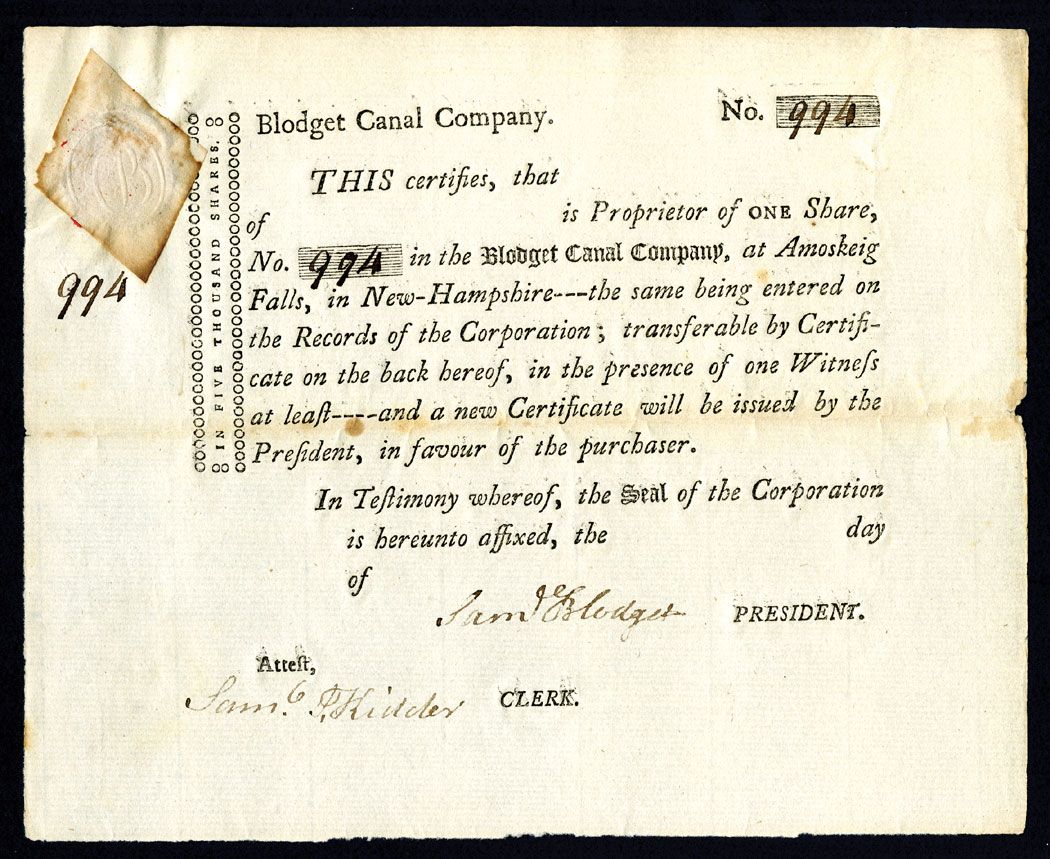 Blodget Canal Company.
No. 994
THIS certifies, that
of is Proprietor of ONE Share,
No. 994 in the Blodget Canal Company, at Amoskeig
Falls, in New-Hampshire---the same being entered on
the Records of the Corporation; transferable by Certifi-
cate on the back hereof, in the presence of one Witneſs
at leaſt----and a new Certificate will be issued by the
Preſident, in favour of the purchaser.
In Teſtimony whereof, the Seal of the Corporation
is hereunto affixed, the day
of
Samˡ Blodget PRESIDENT.
Atteſt,
Samˡ. P. Kidder CLERK.
IN FIVE THOUSAND SHARES.
994